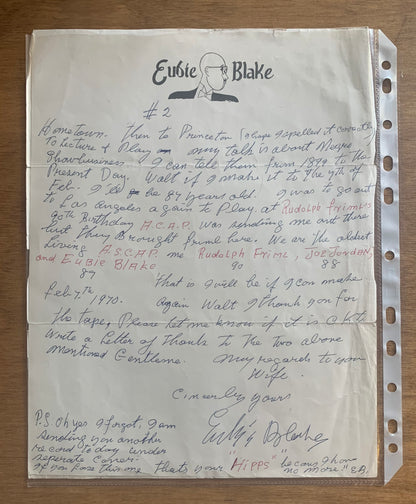 Eubie Blake
#2
Hometown. Then to Princeton I hope I spelled it correctly
To Lecture & Play my talk is about Negro
Showbusiness I can talk them from 1899 to the
Present Day. Walt if I make it to The 7th of
Feb. I'll be 87 years old. I was to go out
to Los Angeles again to Play at Rudolph Frimls
90th Birthday A.C.A.P. was sending me out there
but They Brought Friml here. We are the oldest
Living A.S.C.A.P. me Rudolph Friml, Joe Jordan,
and Eubie Blake 90 88
87 That is I will be if I can make
Feb. 7th 1970. Again Walt I Thank you for
the tape, Please let me know if it is O K to
Write a Letter of Thanks to The two above
Mentioned Gentleme. My regards to your
Wife.
Cincerly yours
Eubie Blake
P.S. Oh yes I forgot, I am
Sending you another
record today under
seperate Cover.
if you lose this one thats your "Hipps" because I have
no more" E.B.